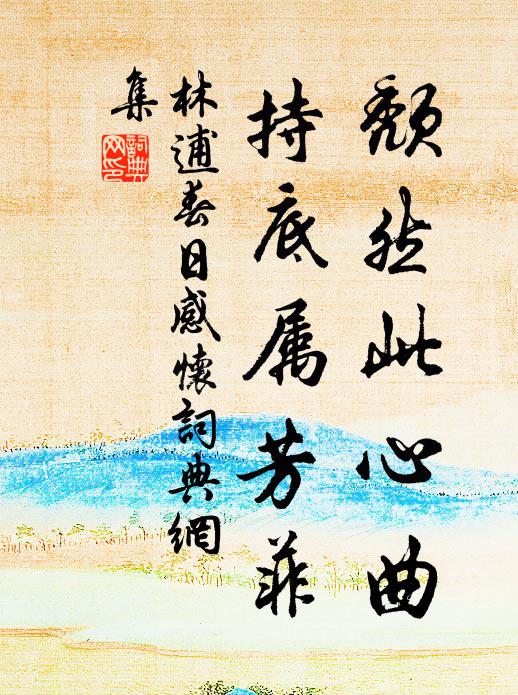 颓然此心曲
持底属芳菲
林逋春日感懷詞典網
集
詞典
网印